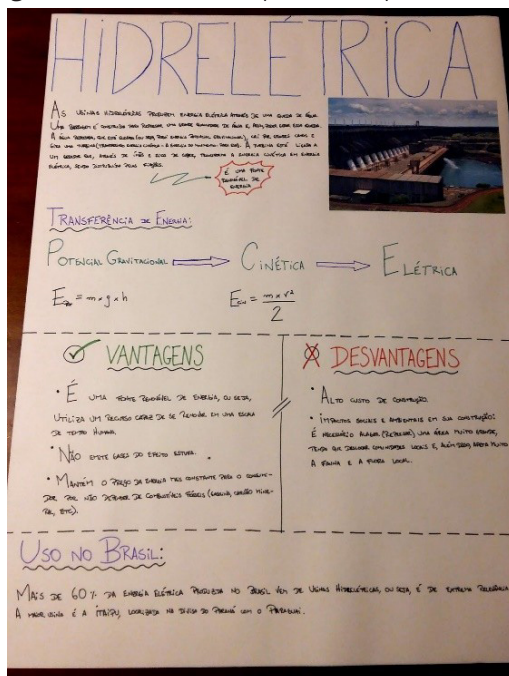 HIDRELÉTRICA
AS USINAS HIDRELÉTRICAS PRODUZEM ENERGIA ELÉTRICA ATRAVÉS DE UMA QUEDA DE ÁGUA.
UMA BARRAGEM É CONSTRUÍDA PARA REPRESAR UMA GRANDE QUANTIDADE DE ÁGUA E, ASSIM, PODER GERAR ESSA QUEDA.
A ÁGUA REPRESADA, QUE ESTÁ PARADA (OU SEJA, POSSUI ENERGIA POTENCIAL GRAVITACIONAL), CAI POR GRANDES CANOS E
GIRA UMA TURBINA (TRANSFERINDO ENERGIA CINÉTICA - A ENERGIA DO MOVIMENTO - PARA ELA). A TURBINA ESTÁ LIGADA A
UM GERADOR QUE, ATRAVÉS DE ÍMÃS E FIOS DE COBRE, TRANSFORMA A ENERGIA CINÉTICA EM ENERGIA
ELÉTRICA, SENDO DISTRIBUÍDA PELAS
É UMA FONTE
RENOVÁVEL DE
ENERGIA
TRANSFERÊNCIA DE ENERGIA:
POTENCIAL GRAVITACIONAL CINÉTICA ELÉTRICA
= m x g x h = m x v²
2
VANTAGENS
• É UMA FONTE RENOVÁVEL DE ENERGIA, OU SEJA,
UTILIZA UM RECURSO CAPAZ DE SE RENOVAR EM UMA ESCALA
DE TEMPO HUMANA.
• NÃO EMITE GASES DO EFEITO ESTUFA.
• MANTÉM O PREÇO DA ENERGIA MAIS CONSTANTE PARA O CONSUMI-
DOR POR NÃO DEPENDER DE COMBUSTÍVEIS FÓSSEIS (GASOLINA, CARVÃO MINE-
RAL, ETC).
DESVANTAGENS
• ALTO CUSTO DE CONSTRUÇÃO.
• IMPACTOS SOCIAIS E AMBIENTAIS EM SUA CONSTRUÇÃO:
É NECESSÁRIO ALAGAR (REPRESAR) UMA ÁREA MUITO GRANDE,
TENDO QUE DESLOCAR COMUNIDADES LOCAIS E, ALÉM DISSO, AFETA MUITO
A FAUNA E A FLORA LOCAL.
USO NO BRASIL:
MAIS DE 60% DA ENERGIA ELÉTRICA PRODUZIDA NO BRASIL VEM DE USINAS HIDRELÉTRICAS, OU SEJA, É DE EXTREMA RELEVÂNCIA
A MAIOR USINA É A ITAIPU, LOCALIZADA NA DIVISA DO PARANÁ COM O PARAGUAI.